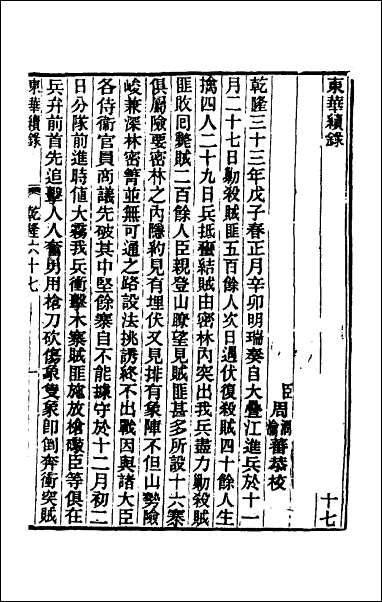 東華續錄
十七
臣周潤蕃恭校
乾隆三十三年戊子春正月辛卯明瑞奏自大疊江進兵於十一
月二十七日勦殺賊匪五百餘人次日遇伏復殺賊四十餘人生
擒四人二十九日兵抵蠻結賊由密林內突出我兵盡力勦殺賊
匪敗回斃賊二百餘人臣親登山瞭望見賊匪甚多所設十六寨
俱屬險要密林之內隱約見有埋伏又見排有象陣不但山勢險
峻兼深林密箐並無可通之路設法挑誘終不出戰因與諸大臣
各侍衞官員商議先破其中堅餘寨自不能據守於十二月初二
日分隊前進時値大霧我兵衝擊木寨賊匪施放槍礮臣等俱在
兵弁前首先追擊人人奮勇用槍刀砍傷象隻象卽倒奔衝突賊
東華續錄
乾隆六十七
一